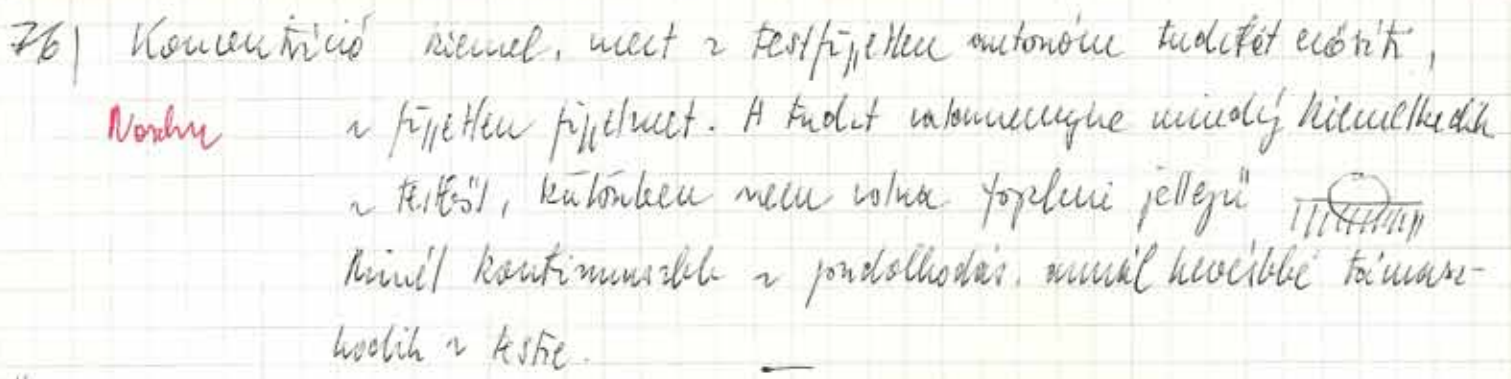 76) Koncentráció kiemel, mert a testfüggetlen autonóm tudatot erősíti,
a független figyelmet. A tudat valamennyire mindíg kiemelkedik
a testből, különben nem volna fogalmi jellegű
Minél kontinuusabb a gondolkodás, annál kevésbbé támasz-
kodik a testre.